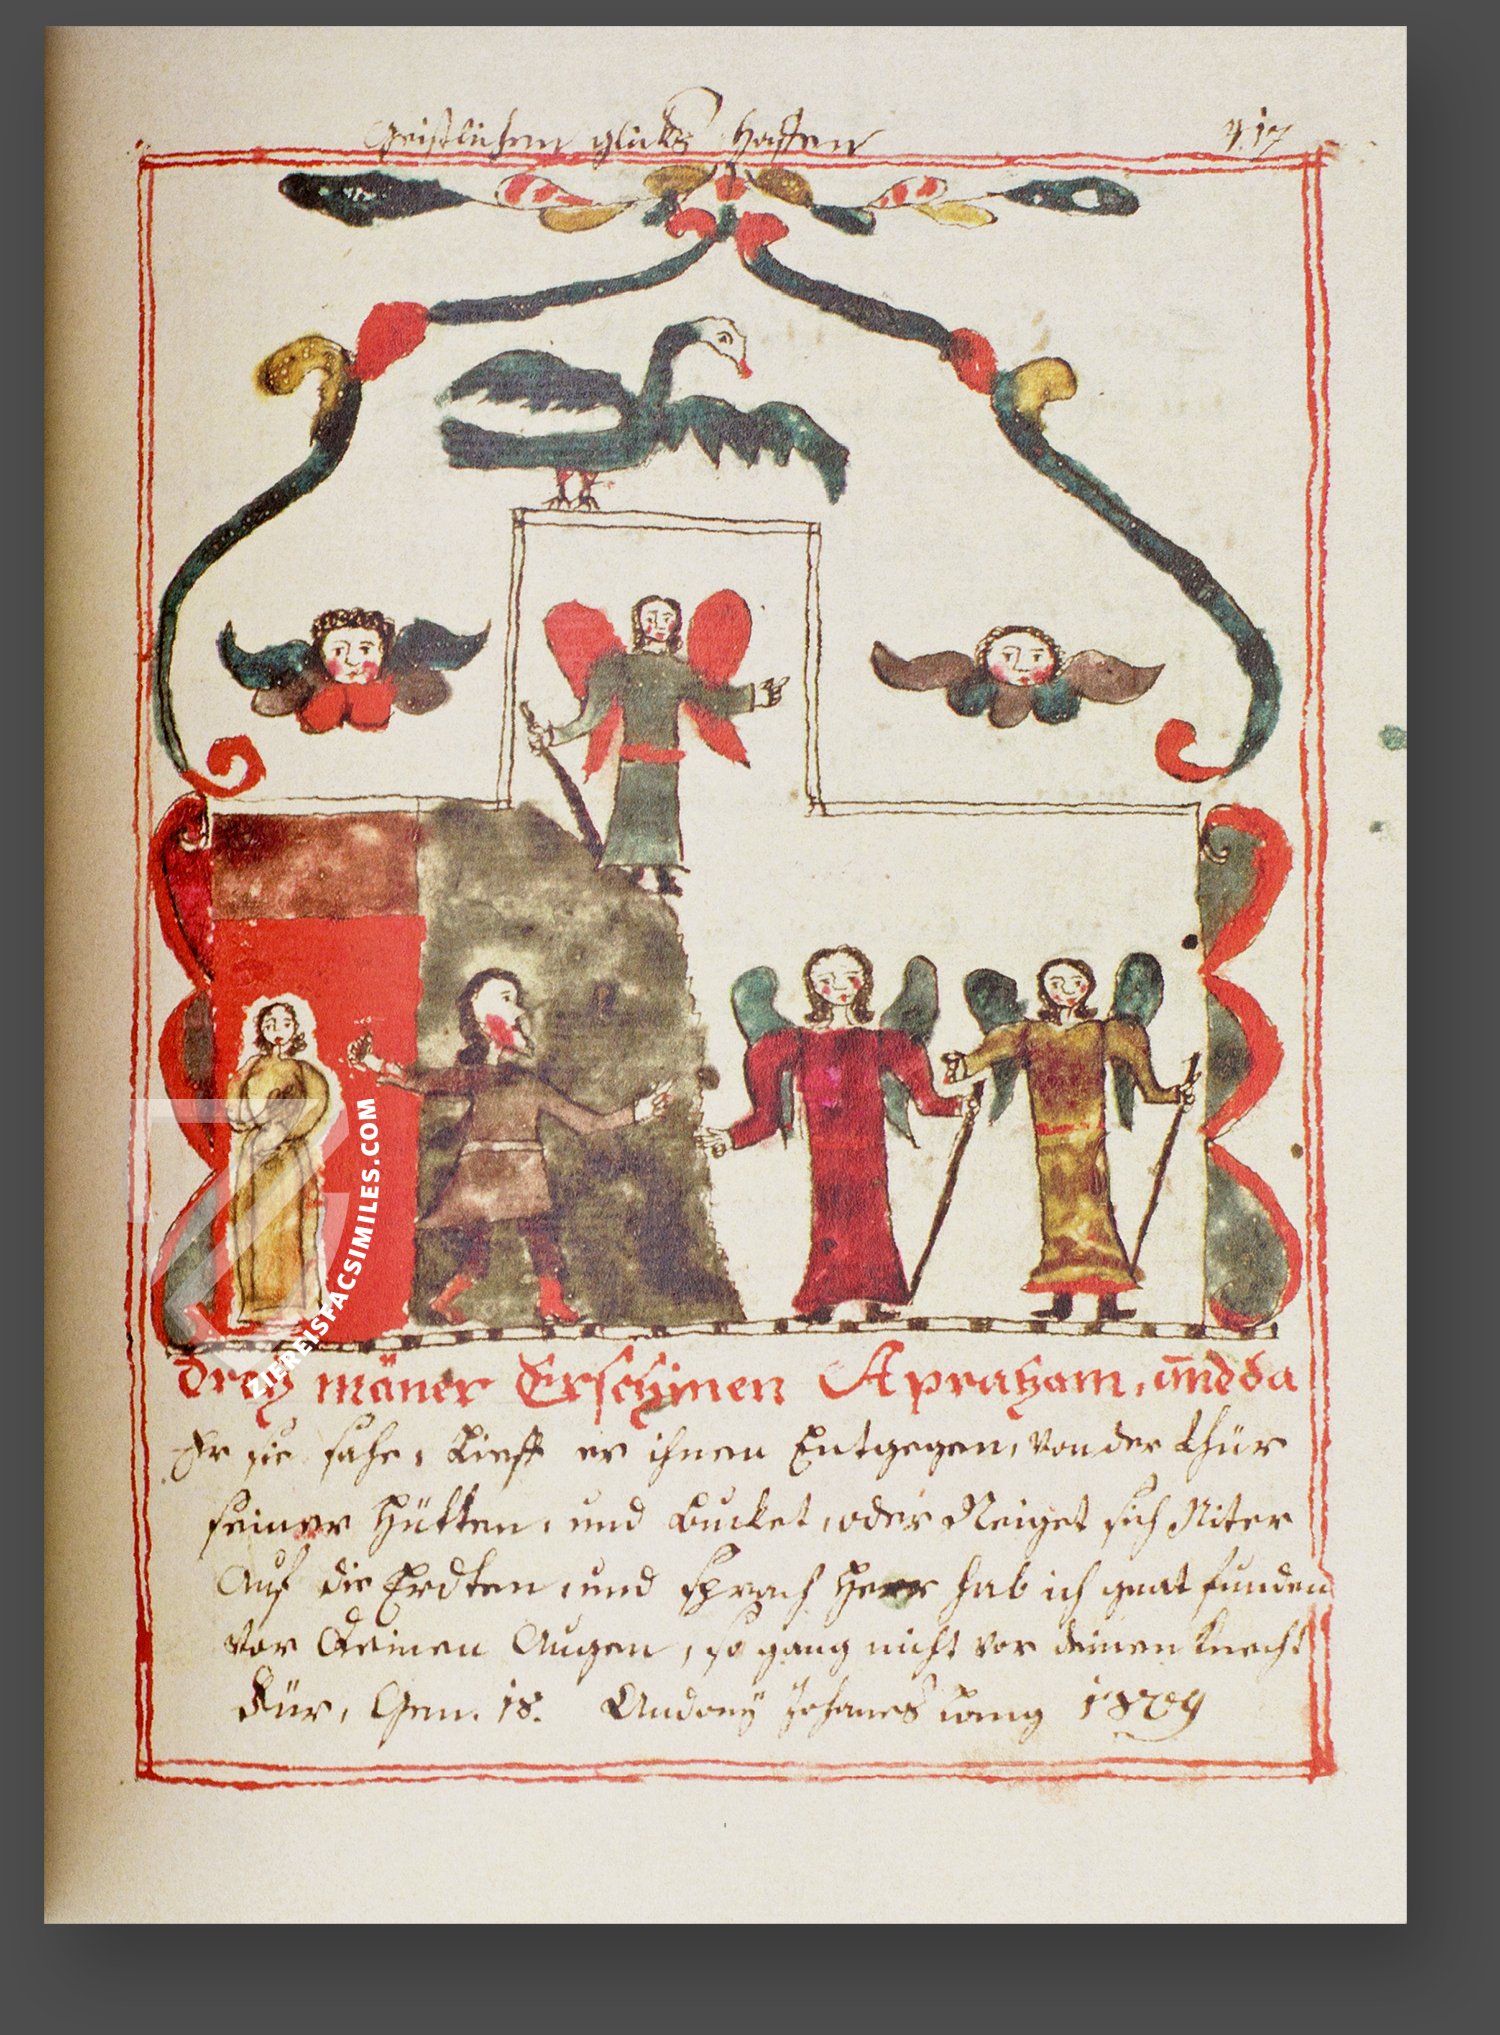 Geistlichem glicks Haffen 417
Dreÿ mäner Erschinen Apraham, und da
Er sie sahe, Lieff er ihnen Entgegen, von der thür
seiner Hütten, und Bucket, oder Neiget sich Niter
Auf die Erdten, und sprach Herr hab ich gnat funden
vor Deinen Augen, so gang nicht vor deinen knecht
Für, Gen. 18. Andonÿ Johanes 1809
ZIEREISFACSIMILES.COM